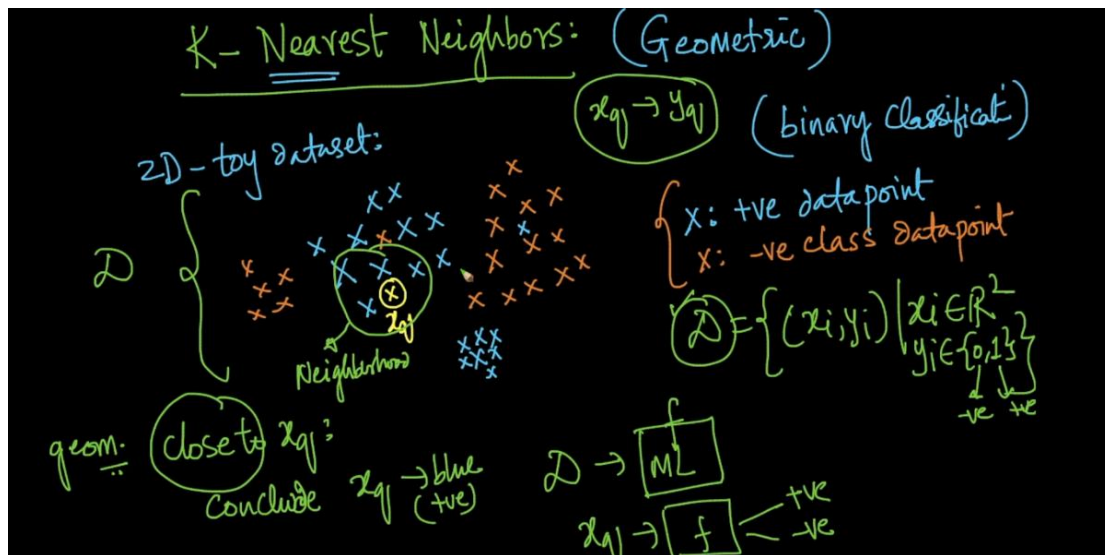 K- Nearest Neighbors: (Geometric)
xq → yq
(binary classificatⁿ)
2D-toy dataset:
x: +ve datapoint
x: -ve class datapoint
D
xq
D = {(xi, yi) | xi ∈ R²
yi ∈ {0,1}}
-ve +ve
Neighborhood
geom. close to xq:
conclude xq → blue
(+ve)
f
D → ML
xq → f
+ve
-ve